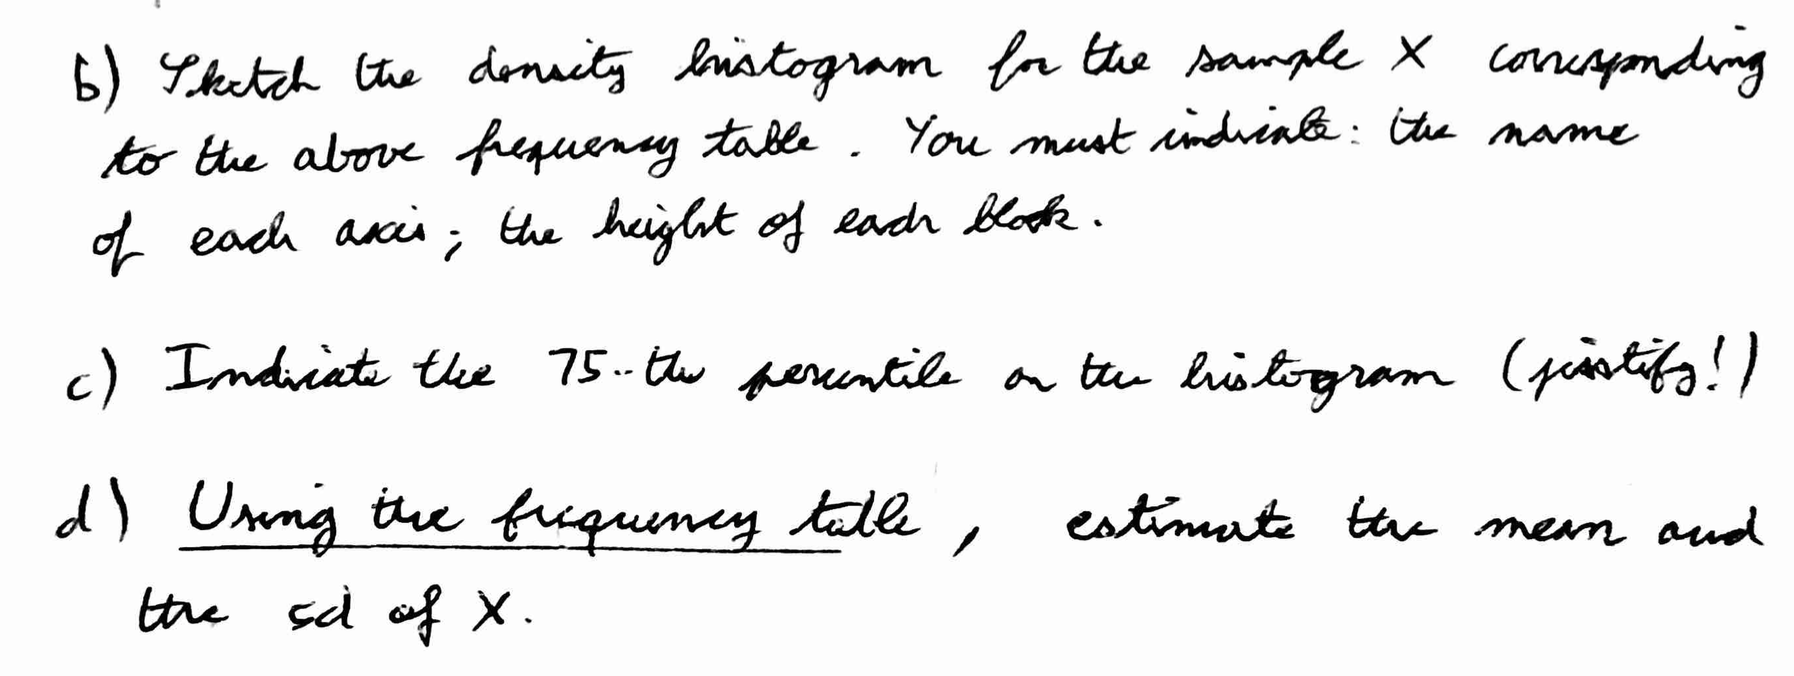 b) Sketch the density histogram for the sample X corresponding
to the above frequency table. You must indicate: the name
of each axis; the height of each block.
c) Indicate the 75-th percentile on the histogram (justify!)
d) Using the frequency table, estimate the mean and
the sd of X.